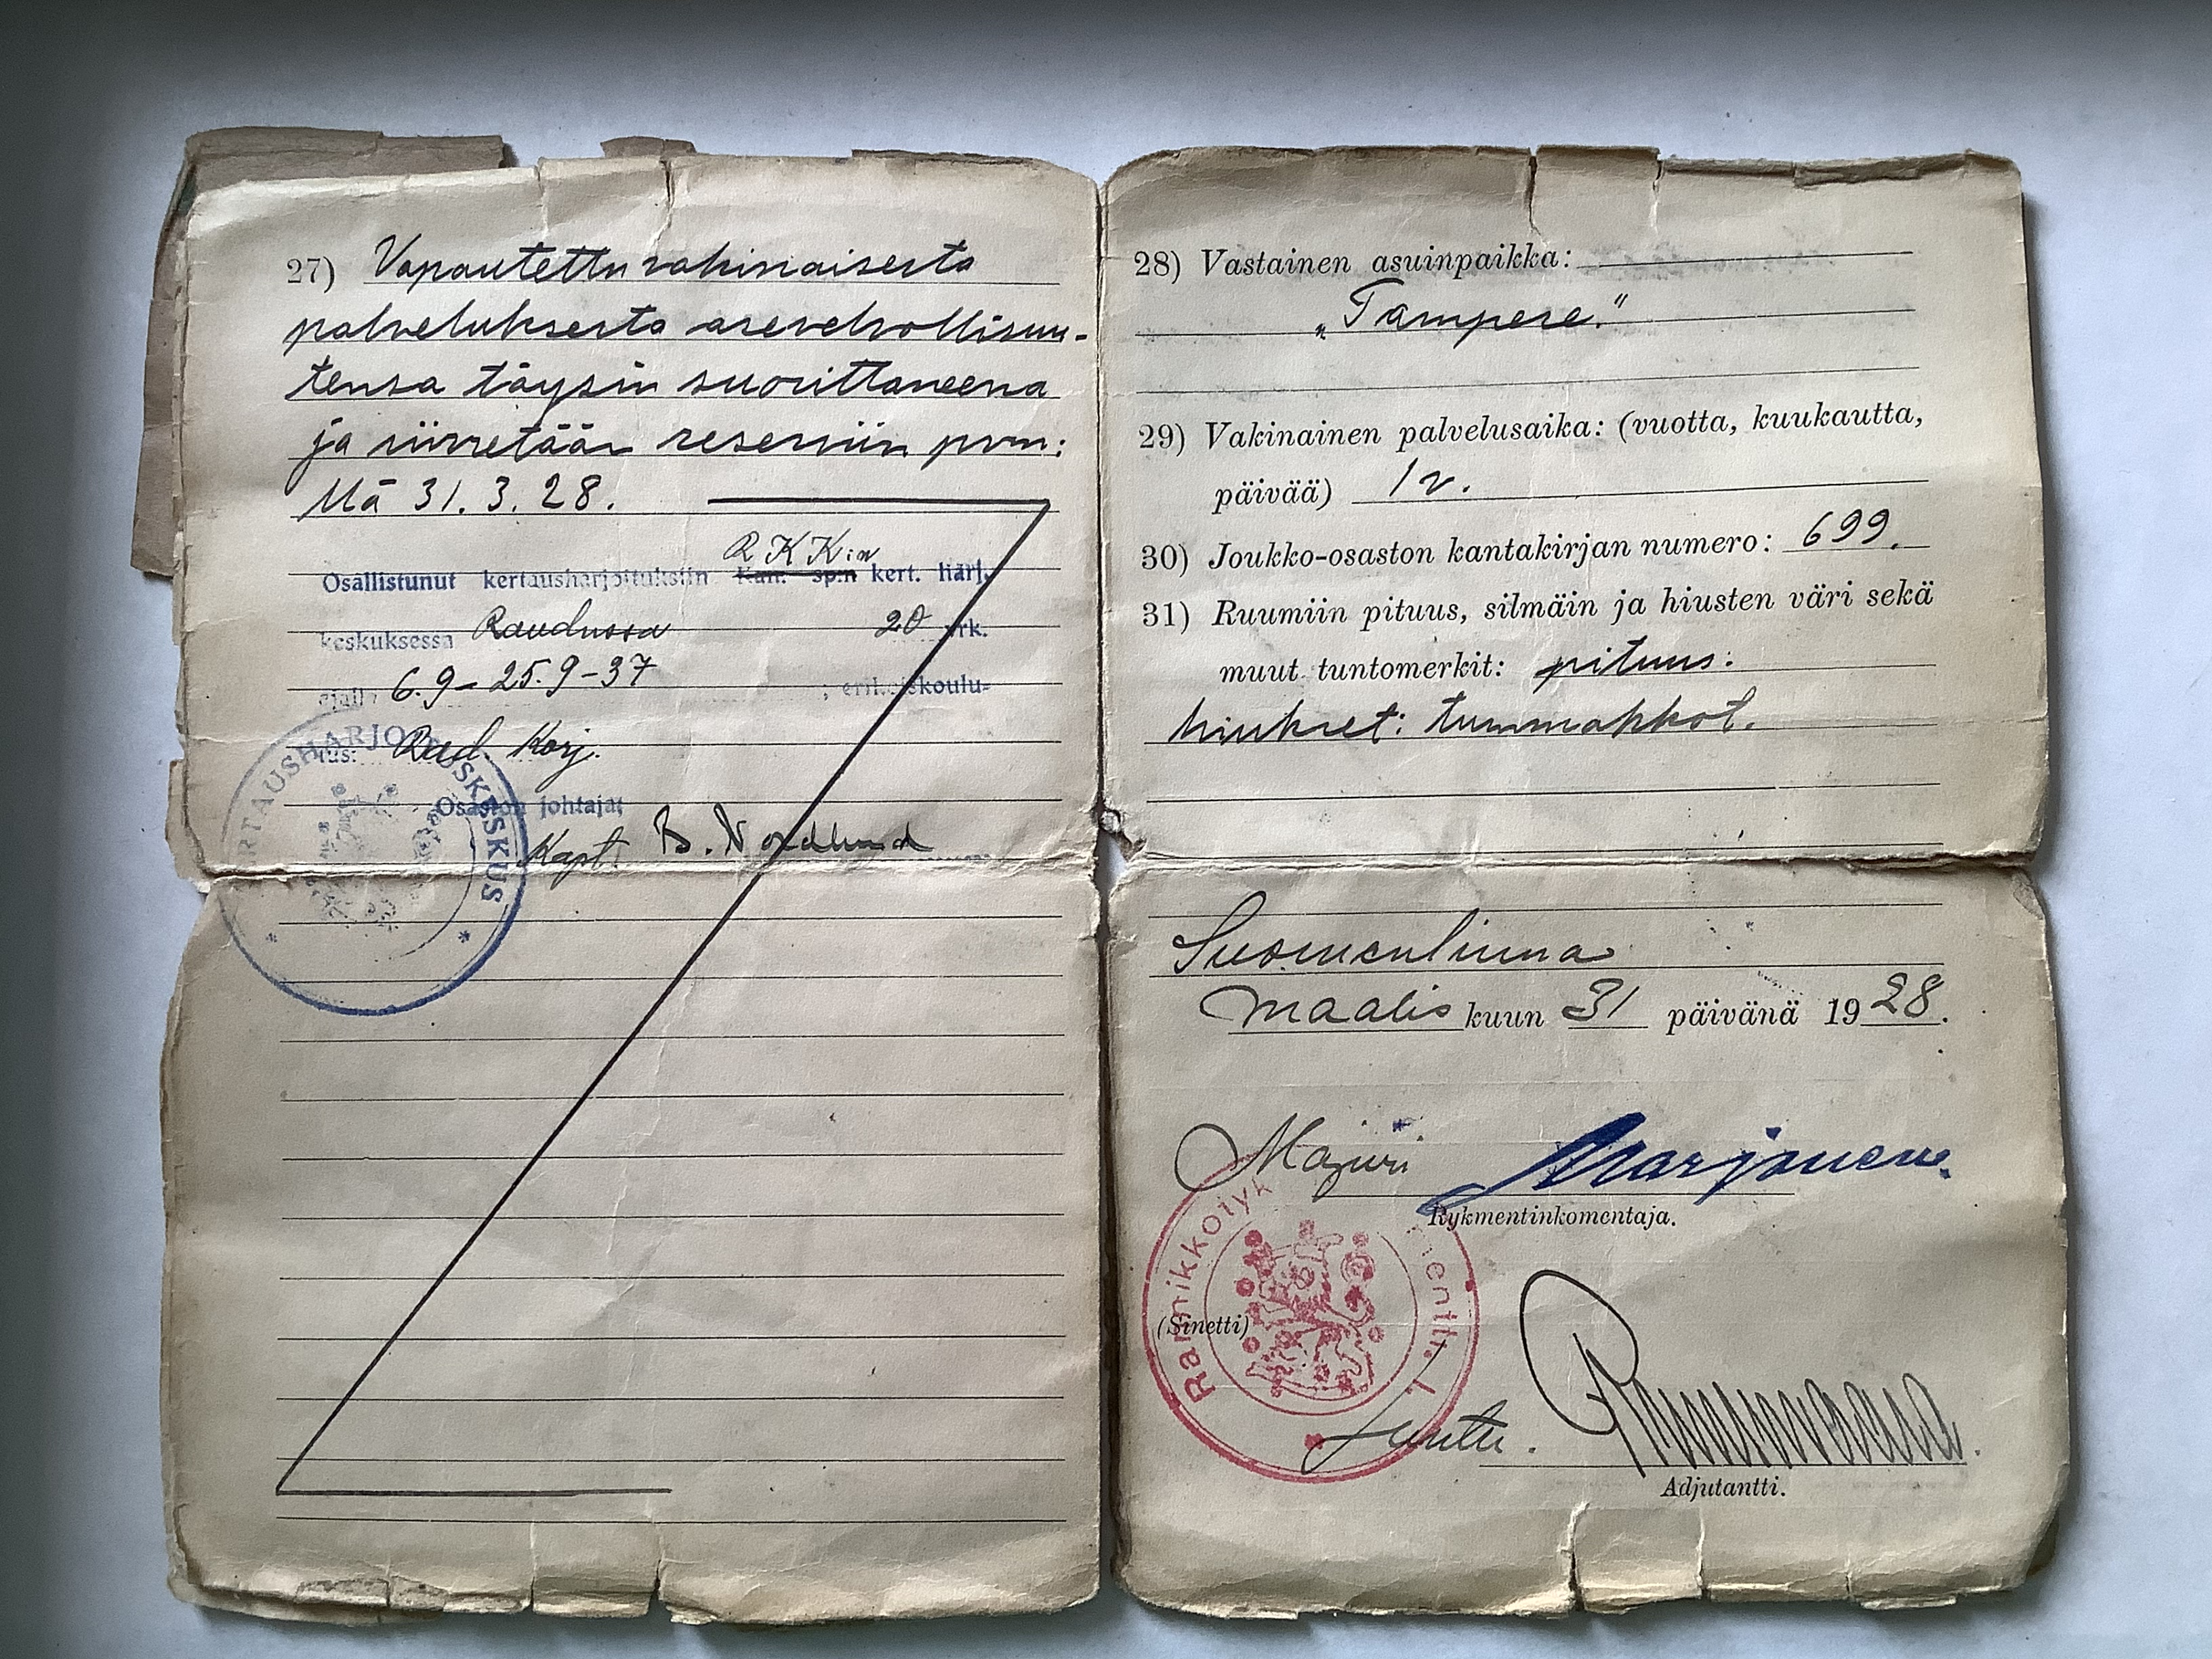 27) Vapautettu vakinaisesta
palveluksesta asevelvollisuu-
tensa täysin suorittaneena
ja siirretään reserviin pvm:
llä 31.3.28.
RKK:n
Osallistunut kertausharjoituksiin Kan. sp:n kert. harj.
keskuksessa Raudussa 20 vrk.
ajalla 6.9-25.9-37 ; erikoiskoulu-
tus: Rad. Korj.
KERTAUSHARJOITUSKESKUS
Osaston johtaja:
Kapt. B. Nordlund
28) Vastainen asuinpaikka:
„Tampere."
29) Vakinainen palvelusaika: (vuotta, kuukautta,
päivää) 1 v.
30) Joukko-osaston kantakirjan numero: 699.
31) Ruumiin pituus, silmäin ja hiusten väri sekä
muut tuntomerkit: pituus:
hiukset: tummahkot.
Suomenlinna
maalis kuun 31 päivänä 1928.
Majuri Marjonen.
Rykmentinkomentaja.
Rannikkotykistörykmentti 1.
(Sinetti)
Luutn.
Adjutantti.